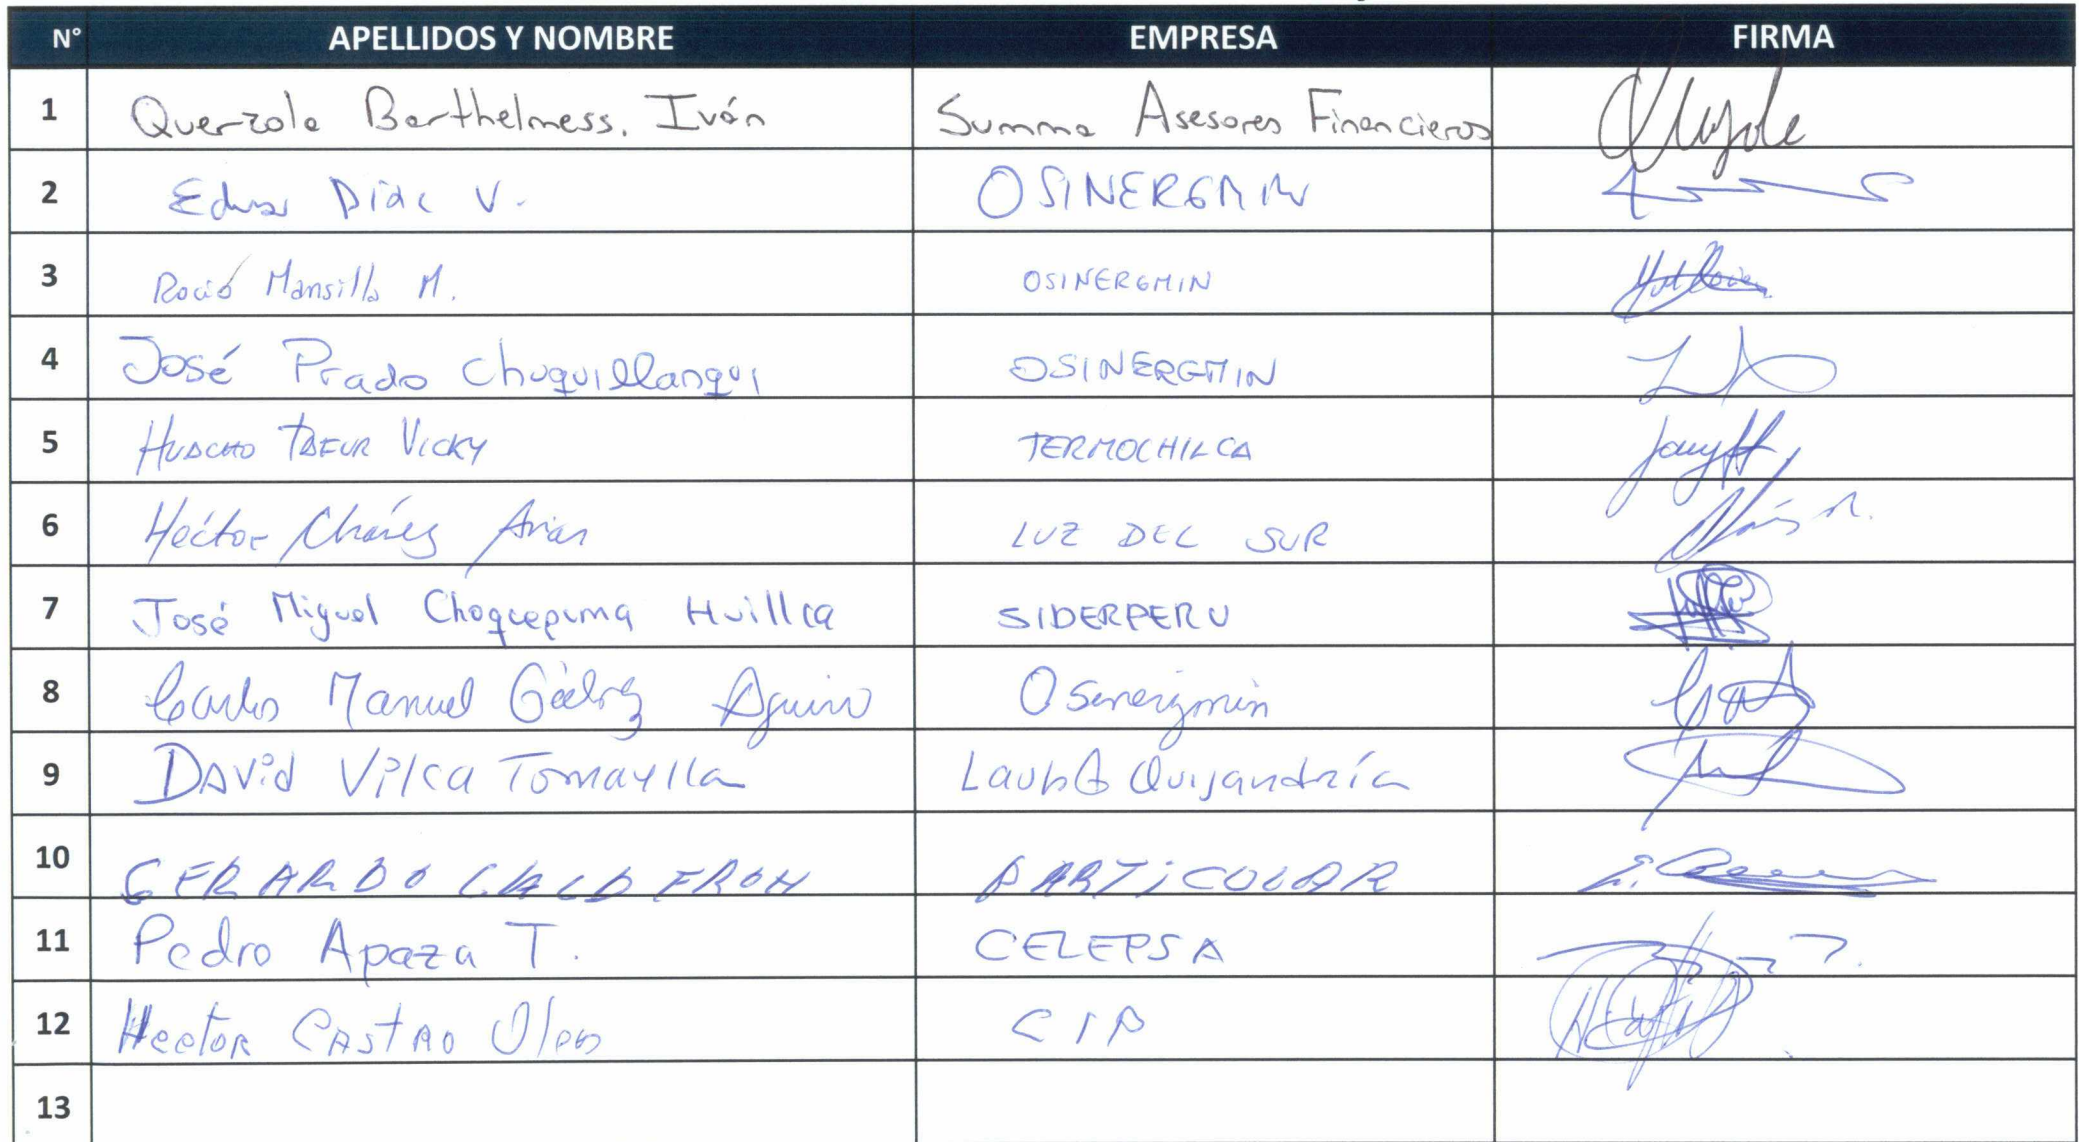 N° APELLIDOS Y NOMBRE EMPRESA FIRMA
1 Querzola Barthelmess, Iván Summa Asesores Financieros
2 Díaz V. OSINERGMIN
3 Rocío Mansilla M. OSINERGMIN
4 José Prado Chuquillanqui OSINERGMIN
5 HUACHO TAFUR VICKY TERMOCHILCA
6 Héctor Chávez Arias LUZ DEL SUR
7 José Miguel Choquepuma Huillca SIDERPERU
8 Carlos Manuel Osinergmin
9 DAVid Vilca Tomaylla Quijandría
10 GERARDO CALDERON PARTICULAR
11 Pedro Apaza T. CELEPSA
12 Hector CASTRO CIP
13